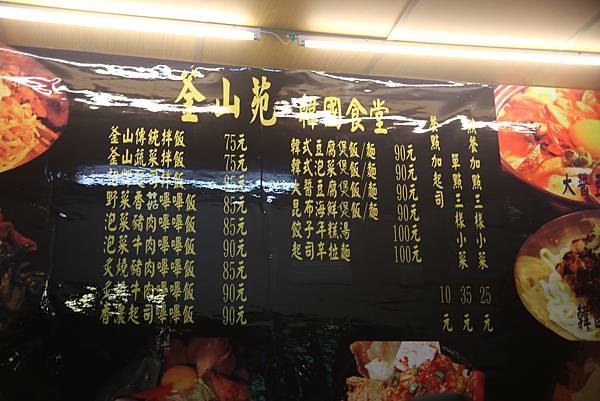 釜山苑 韓國食堂
釜山傳統拌飯 75元
釜山蔬菜拌飯 75元
拌飯 85元
野菜香菇嗶嗶飯 85元
泡菜豬肉嗶嗶飯 85元
泡菜牛肉嗶嗶飯 90元
炙燒豬肉嗶嗶飯 85元
牛肉嗶嗶飯 90元
香濃起司嗶嗶飯 90元
韓式豆腐煲飯/麵 90元
韓式泡菜煲飯/麵 90元
大醬豆腐煲飯/麵 90元
昆布海鮮煲飯/麵 90元
餃子年糕湯 100元
起司年拉麵 100元
餐點加起司 10元
單點三樣小菜 35元
餐加點三樣小菜 25元
大醬
韓